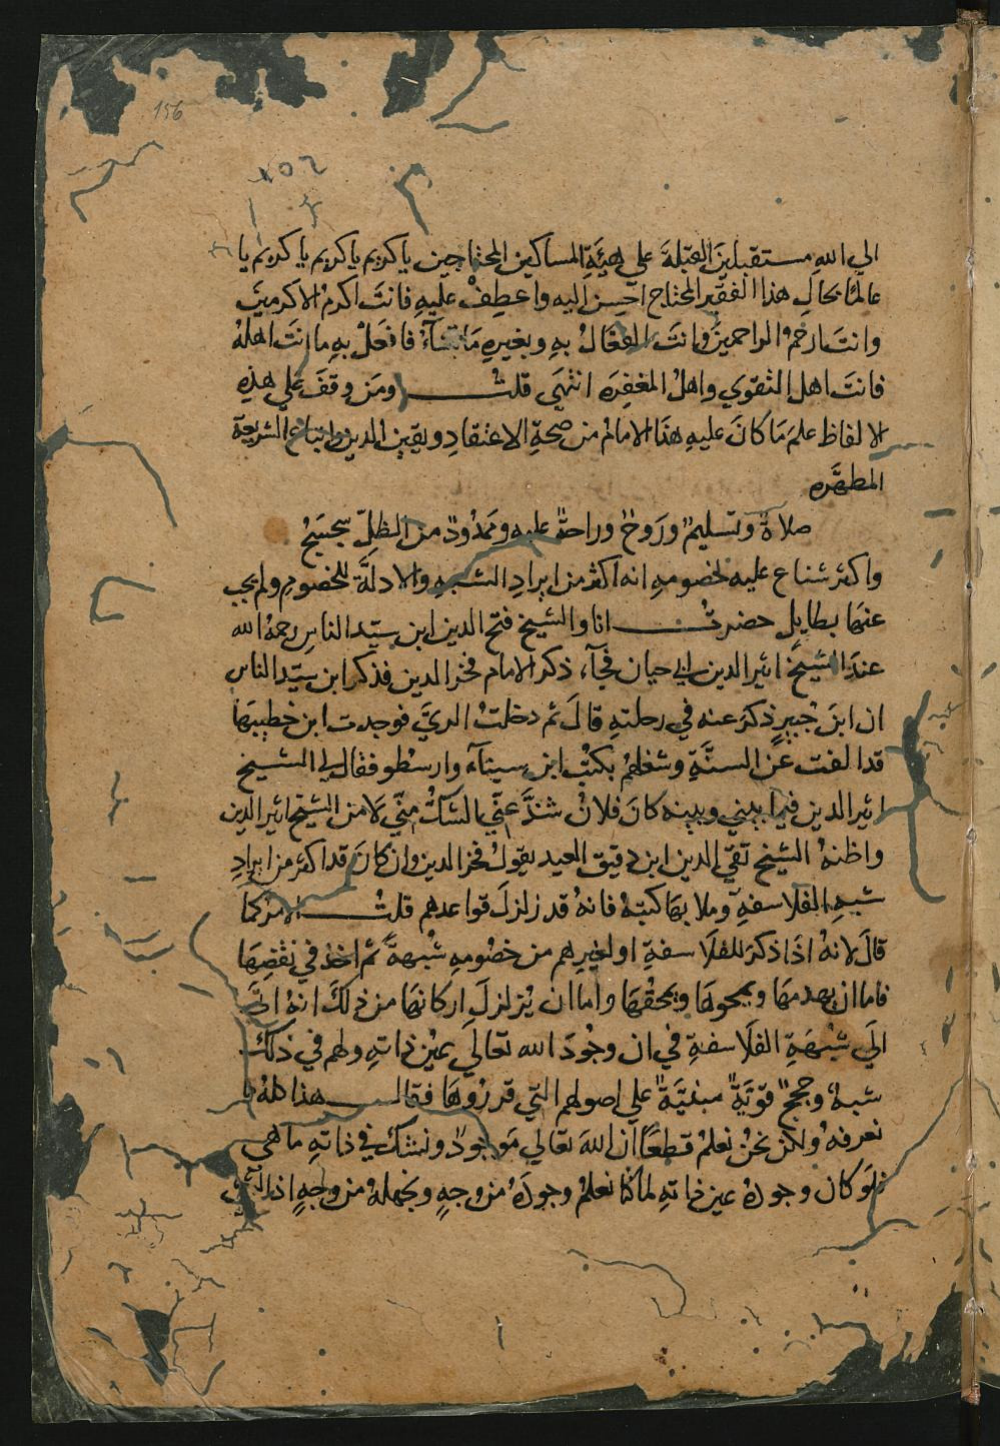 156
الي الله مستقبلين القبلة علي هيئة المساكين المحتاجين ياكريم ياكريم ياكريم يا
عالما بحال هذا الفقير المحتاج احسن اليه واعطف عليه فانت اكرم الاكرمين
وانت ارحم الراحمين وانت الفعّال به وبغيره ما تشآء فافعل به ما انت اهله
فانت اهل التقوي واهل المغفره انتهي قلت ومن وقف علي هذه
الالفاظ علم ما كان عليه هذا الامام من صحة الاعتقاد ويقين الدين واتباع الشريعة
المطهّره
صلاةٌ وتسليمٌ ورَوحٌ وراحةٌ عليه وممدُودٌ من الظلّ سجسجُ
واكثر شناع عليه لخصومه انه اكثر من ايراد الشبه والادلّة للخصوم ولم يجب
عنها بطايل حضرت انا والشيخ فتح الدين ابن سيّد الناس رحمه الله
عند الشيخ اثير الدين ابي حيان فجآء ذكر الامام فخر الدين فذكر ابن سيّد الناس
ان ابن جُبير ذكر عنه في رحلته قال ثم دخلت الريّ فوجدت ابن خطيبها
قد الفت عن السنّة وشغلهم بكتب ابن سينآء وارسطو فقال لي الشيخ
اثير الدين فيما بيني وبينه كان فلانٌ شذّ عنّي الشكّ منّي لا من الشيخ اثير الدين
واظنهُ الشيخ تقي الدين ابن دقيق العيد يقول فخر الدين وان كان قد اكثر من ايراد
شبه الفلاسفه وملا بها كتبه فانهُ قد زلزل قواعدهم قلت الامر كما
قال لانهُ اذا ذكر للفلاسفة او لغيرهم من خصومه شبهةً ثم اخذ في نقضها
فاما ان يهدمها ويمحوها ويمحقها واما ان يُزلزل اركانها من ذلك انهُ اتي
الي شبهة الفلاسفة في ان وجود الله تعالي عين ذاته ولهم في ذلك
شبهٌ وحججٌ قويّةٌ مبنيّةٌ علي اصولهم التي قررُوها فقال هذا كله
نعرفه ولكن نحن نعلم قطعًا ان الله تعالي موجودٌ ونشك في ذاته ما هي
فلو كان وجودهُ عين ذاته لما كنا نعلم وجوده من وجهٍ ونجهلهُ من وجهٍ اذ الشي